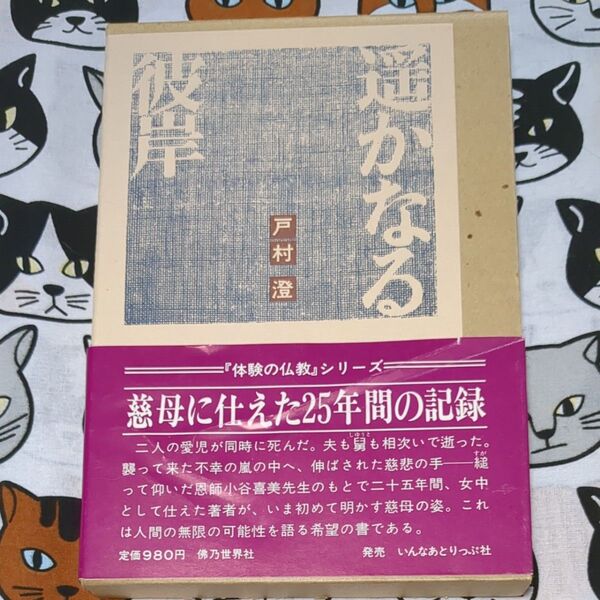 遥かなる
彼岸
戸村澄
『体験の仏教』シリーズ
慈母に仕えた25年間の記録
二人の愛児が同時に死んだ。夫も舅も相次いで逝った。
しゅうと
襲って来た不幸の嵐の中へ、伸ばされた慈悲の手――縋
すが
って仰いだ恩師小谷喜美先生のもとで二十五年間、女中
として仕えた著者が、いま初めて明かす慈母の姿。これ
は人間の無限の可能性を語る希望の書である。
定価980円 佛乃世界社 発売 いんなあとりっぷ社